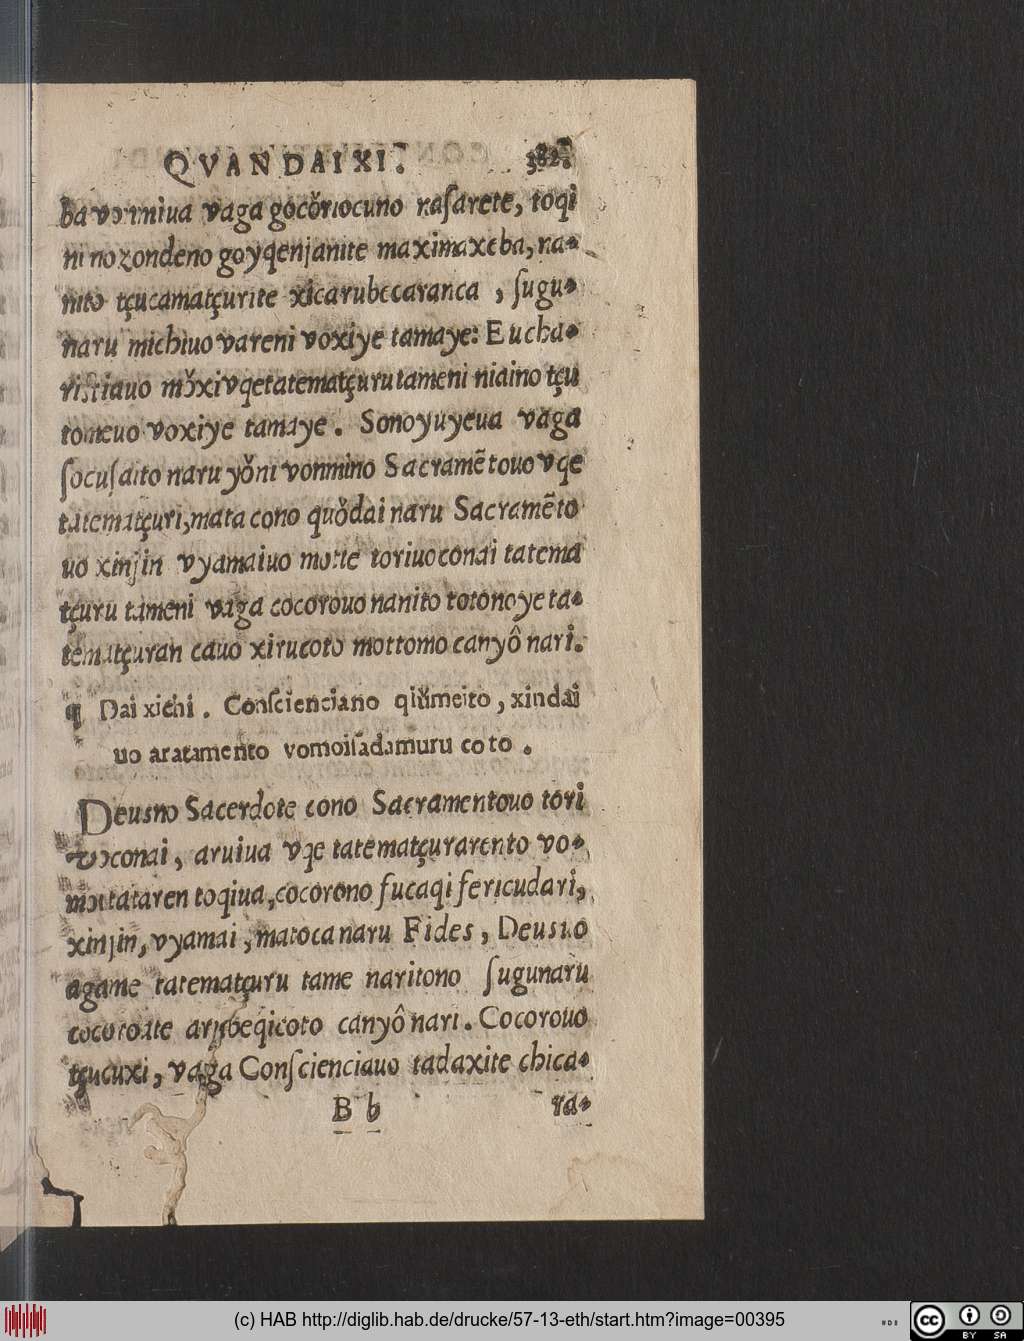 QVANDAI XI. 382.
ba võmiua vaga gocǒriocuno naſarete, toqi
ni nozondeno goyqenjanite maximaxeba, na-
nito tçucamatçurite xicarubecaranca , ſugu-
naru michiuo vareni voxiye tamaye: Eucha-
riſtiauo mǒxivqetatematçuru tameni niaino tçu
tomeuo voxiye tamaye . Sonoyuyeua vaga
ſocuſaito naru yǒni vonmino Sacramẽtouo vqe
tatematçuri, mata cono quǒdai naru Sacramẽto
uo xinjin vyamaiuo motte toriuoconai tatema
tçuru tameni vaga cocorouo nanito totonoye ta-
tematçuran cauo xirucoto mottomo canyô nari.
¶ Dai xichi . Conſcienciano qiǔmeito , xindai
uo aratamento vomoiſadamuru coto .
Deusno Sacerdote cono Sacramentouo tori
voconai , aruiua vqe tatematçurarento vo-
mottataren toqiua, cocorono fucaqi fericudari,
xinjin, vyamai , matoca naru Fides , Deusuo
agame tatematçuru tame naritono ſugunaru
cocoroate arubeqicoto canyô nari . Cocorouo
tçucuxi , vaga Conſcienciauo tadaxite chica-
B b ra-
(c) HAB http://diglib.hab.de/drucke/57-13-eth/start.htm?image=00395
cc BY SA